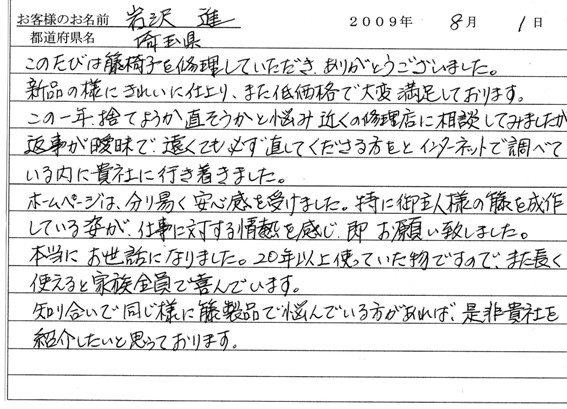 お客様のお名前 岩沢 進 2009年 8月 1日
都道府県名 埼玉県
このたびは籐椅子を修理していただき、ありがとうございました。
新品の様にきれいに仕上り、また低価格で大変満足しております。
この一年、捨てようか直そうかと悩み近くの修理店に相談してみましたが
返事が曖昧で、遠くても必ず直してくださる方をとインターネットで調べて
いる内に貴社に行き着きました。
ホームページは、分り易く安心感を受けました。特に御主人様の籐を成作
している姿が、仕事に対する情熱を感じ、即お願い致しました。
本当にお世話になりました。20年以上使っていた物ですので、また長く
使えると家族全員で喜んでいます。
知り合いで同じ様に籐製品で悩んでいる方があれば、是非貴社を
紹介したいと思っております。